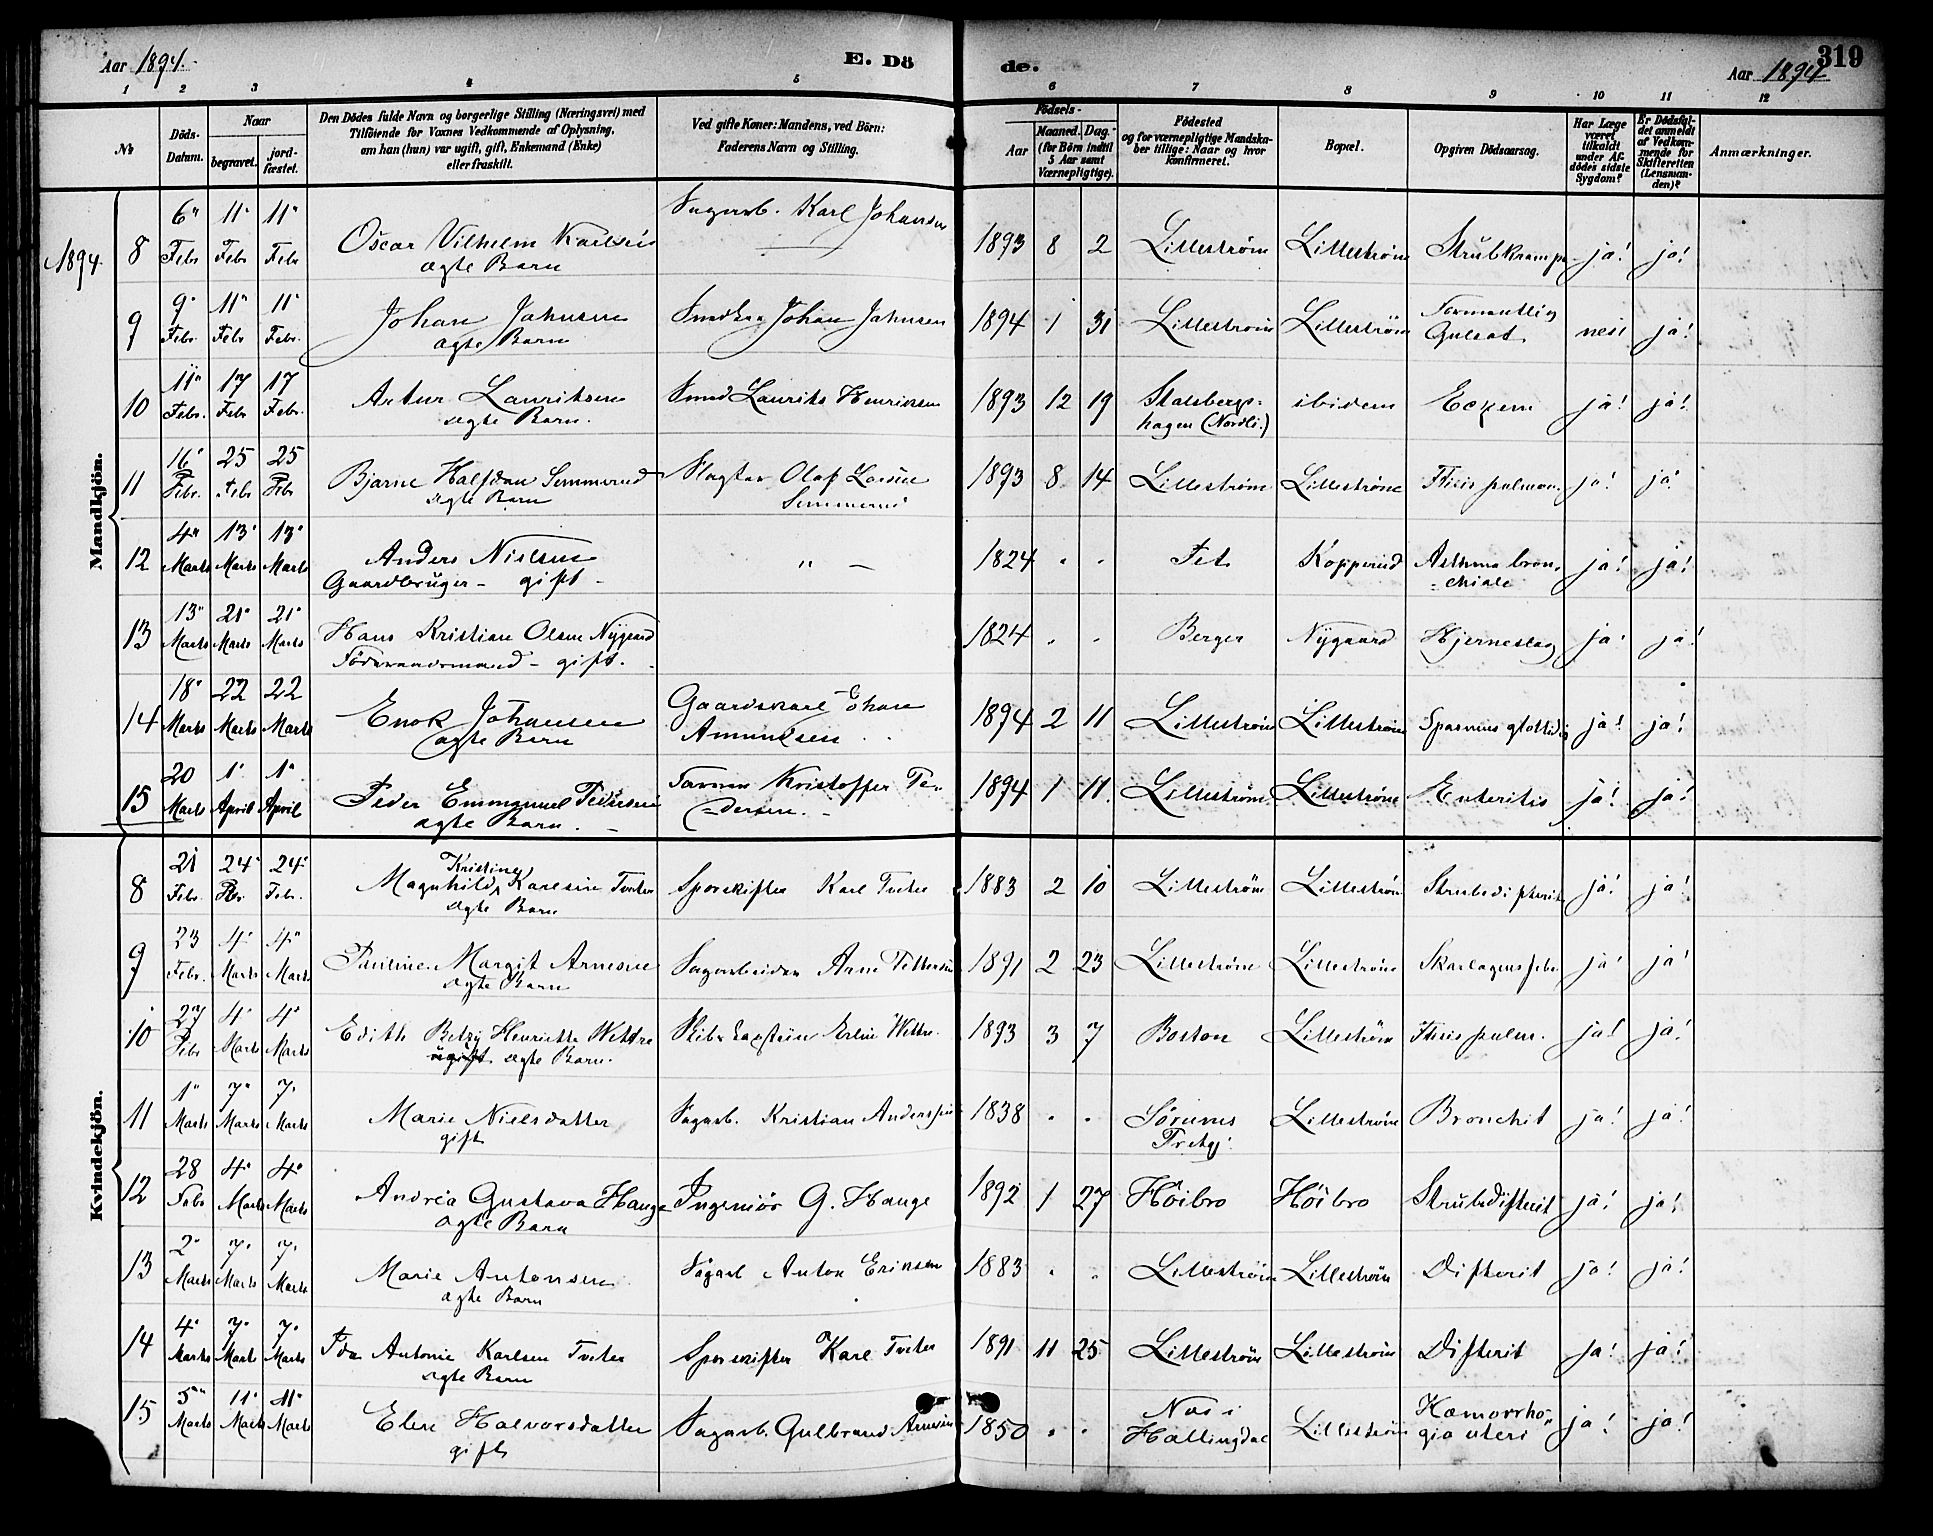 Aar 1894.
E. Döde.
Aar 1894
319
1 2 3 4 5 6 7 8 9 10 11 12
No.
Döds-Datum.
Naar
begravet.
jordfæstet.
Den Dödes fulde Navn og borgerlige Stilling (Næringsvei) med
Tilföiende for Voxnes Vedkommende af Oplysning,
om han (hun) var ugift, gift, Enkemand (Enke)
eller fraskilt.
Ved gifte Koner: Mandens, ved Börn:
Faderens Navn og Stilling.
Födsels-
Aar
Maaned. Dag.
(for Börn indtil
5 Aar samt
Værnepligtige).
Födested
og for værnepligtige Mandskaber tillige: Naar og hvor
konfirmeret.
Bopæl.
Opgiven Dödsaarsag.
Har Læge
været
tilkaldt
under Afdödes sidste
Sygdom?
Er Dödsfaldet anmeldt
af Vedkommende for
Skifteretten
(Lensmanden)?
Anmærkninger.
Mandkjön.
1894.
8 6" Febr 11" Febr 11" Febr Oscar Vilhelm Karlsen ægte Barn Sagarb. Karl Johansen 1893 8 2 Lilleström Lilleström Strubkrampe ja! ja!
9 9" Febr. 11" Febr 11" Febr. Johan Jahnsen ægte Barn Johan Jahnsen 1894 1 31 Lilleström Lilleström Formentlig Gulsot nei! ja!
10 11" Febr. 17 Febr 17 Febr. Artur Lauritsen ægte Barn. Smed Laurits Henriksen 1893 12 19 Stalsbergshagen (Nordli.) ibidem Eczem ja! ja!
11 16' Febr. 25 Febr 25 Febr Bjarne Halfdan Semmerud ægte Barn Slagter Olaf Larsen Semmerud 1893 8 14 Lilleström Lilleström Ftisis pulmon. ja! ja
12 4" Marts 13' Marts 13' Marts Anders Nielsen Gaardbruger - gift - " - 1824 " " Fet Kopperud Asthma bronchiale ja! ja!
13 13" Marts 21' Marts 21' Marts Hans Kristian Olsen Nygaard Föderaadsmand - gift. 1824 " " Berger Nygaard Hjerneslag ja! ja!
14 18' Marts 22 Marts 22 Marts Enok Johansen ægte Barn Gaardskarl Johan Amundsen 1894 2 11 Lilleström Lilleström Spasmus glottidis ja! ja!
15 20 Marts 1' April 1' April Peder Emmanuel Pedersen ægte Barn. Kristoffer Pedersen. 1894 1 11. Lilleström Lilleström Enteritis ja! ja!
Kvindekjön.
8 21 Febr. 24' Febr. 24' Febr. Magnhild Kristine Karlsen Tveter ægte Barn Sporskifter Karl Tveter 1883 2 10 Lilleström Lilleström Strubedifterit ja! ja!
9 23 Febr. 4' Marts 4" Marts Pauline Margit Arnesen ægte Barn Sagarbeider Arne Pettersen 1891 2 23 Lilleström Lilleström Skarlagensfeber ja! ja!
10 27 Febr 4' Marts 4' Marts Edith Betzy Henriette Wettre ugift ægte Barn. Wettre. 1893 3 7 Boston Lilleström Ftisis pulm. ja! ja!
11 1" Marts 7" Marts 7. Marts Marie Nielsdatter gift Sagarb. Kristian Anderssen 1838 " " Sörums Prstgj. Lilleström Bronchit ja! ja!
12 28 Febr 4' Marts 4' Marts Andrea Gustava Hauge ægte Barn Ingeniör G. Hauge 1892 1 27 Höibro Höibro Strubedifterit ja! ja!
13 2" Marts 7" Marts 7. Marts Marie Antonsen ægte Barn Sagarb Anton Eriksen 1883 " " Lilleström Lilleström Difterit ja! ja!
14 4' Marts 7. Marts 7. Marts Ida Antonie Karlsen Tveter ægte Barn Sporskifter Karl Tveter 1891 11 25 Lilleström Lilleström Difterit ja! ja!
15 5" Marts 11' Marts 11" Marts Elen Halvorsdatter gift Sagarb. Gulbrand Arnesen 1850 " " Næs i Hallingdal Lilleström Hæmorrhogia uteri ja! ja!